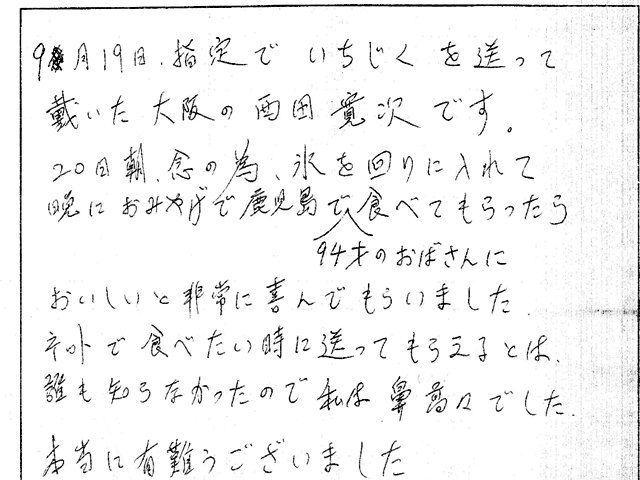 9月19日、指定でいちじくを送って
戴いた大阪の西田寛次です。
20日朝、念の為、氷を回りに入れて
晩におみやげで鹿児島で食べてもらったら
94才のおばさんに
おいしいと非常に喜んでもらいました。
ネットで食べたい時に送ってもらえるとは、
誰も知らなかったので私は鼻高々でした。
本当に有難うございました